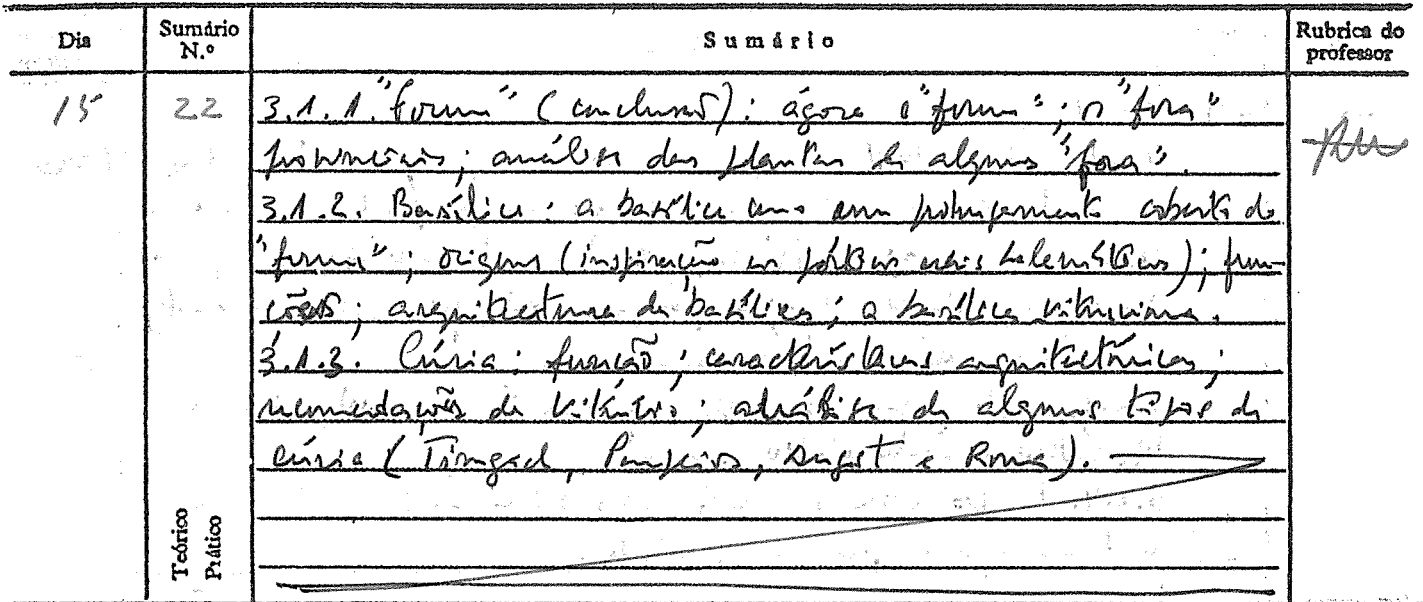 Dia
Sumário N.º
Sumário
Rubrica do professor
15
22
3.1.1. "Forum" (conclusão): ágora e "forum"; os "fora"
provinciais; análise das plantas de alguns "fora".
3.1.2. Basílica: a basílica como um prolongamento coberto do
"forum"; origens (inspiração nos pórticos reais helenísticos); fun-
ções; arquitectura da basílica; a basílica vitruviana.
3.1.3. Cúria: função; características arquitectónicas;
recomendações de Vitrúvio; análise de alguns tipos de
cúria (Timgad, Pompeios, Augst e Roma).
Teórico
Prático